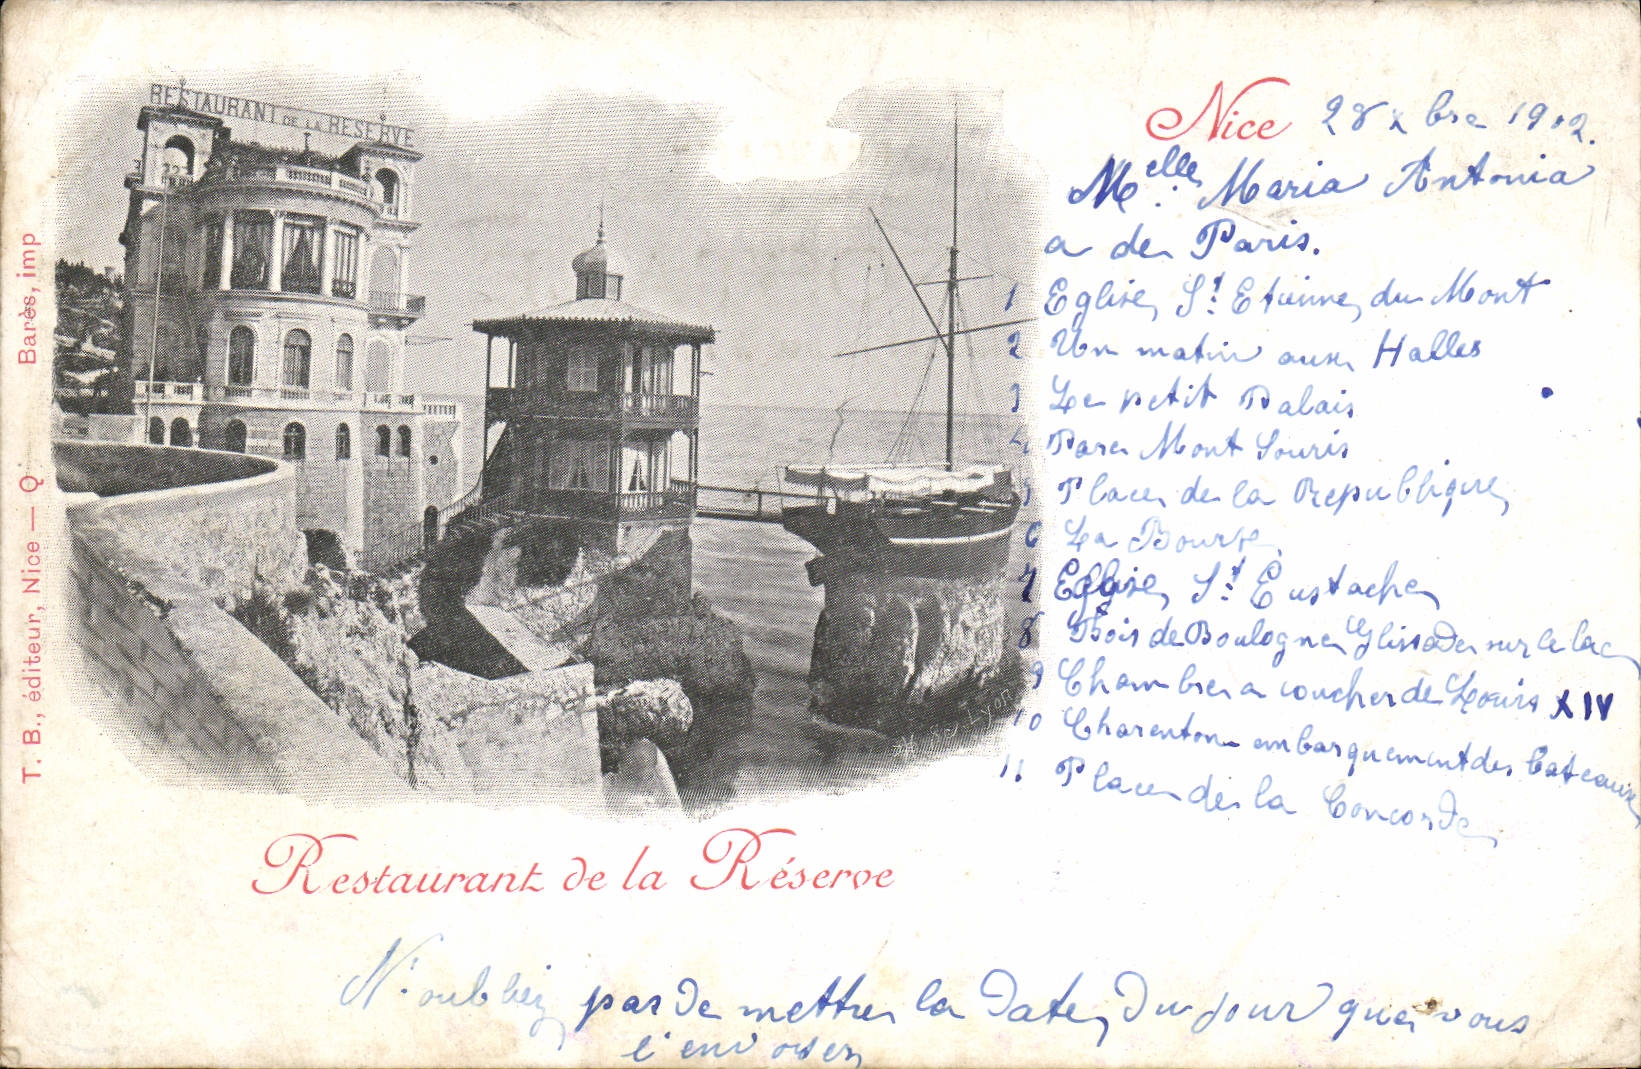 RESTAURANT DE LA RESERVE
Nice 28 Xbre 1902.
Melle. Maria Antonia
a de Paris.
1 Eglise St Etienne du Mont
2 Un matin aux Halles
3 Le petit Palais
4 Parc Mont Souris
5 Place de la Republique
6 La Bourse
7 Eglise St Eustache
8 Bois de Boulogne Glissade sur le lac
9 Chambre a coucher de Louis XIV
10 Charenton embarquement des bateaux
11 Place de la Concorde
Lyon
Restaurant de la Réserve
N'oubliez pas de mettre la date du jour que vous
l'envoyer
T. B., éditeur, Nice — Q Barès, imp